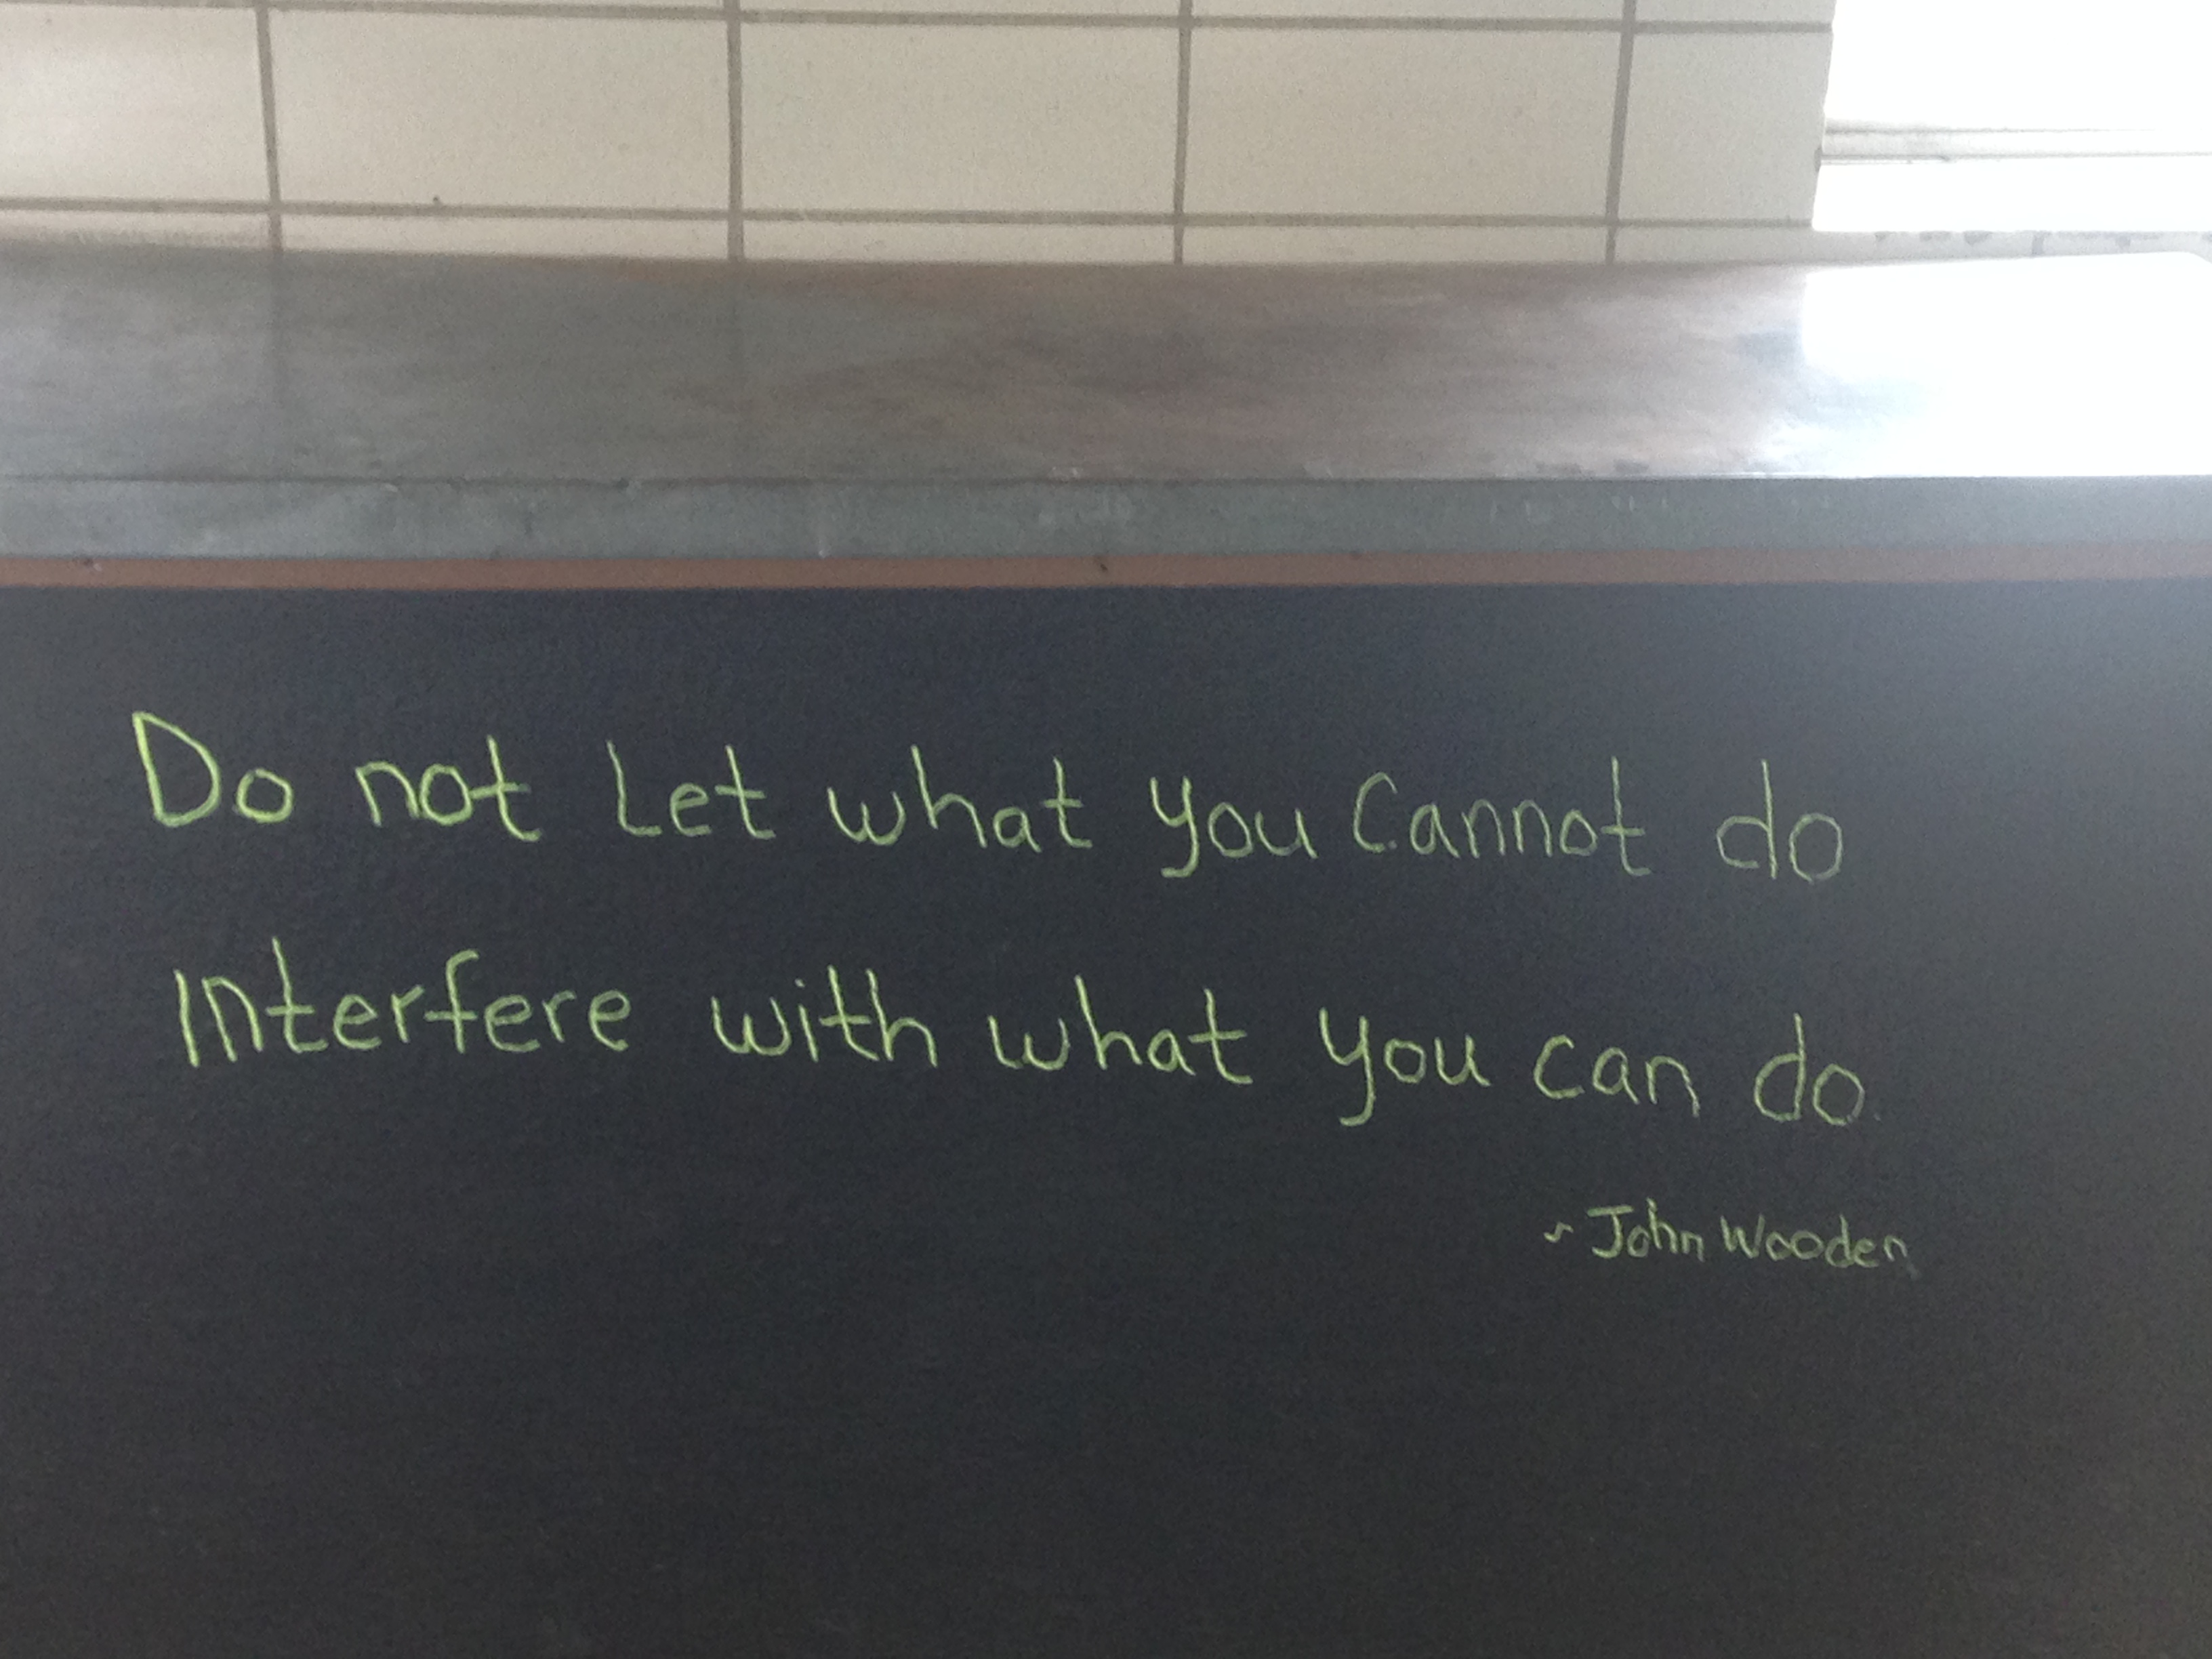 Do not Let what you Cannot do
Interfere with what you can do.
~ John Wooden